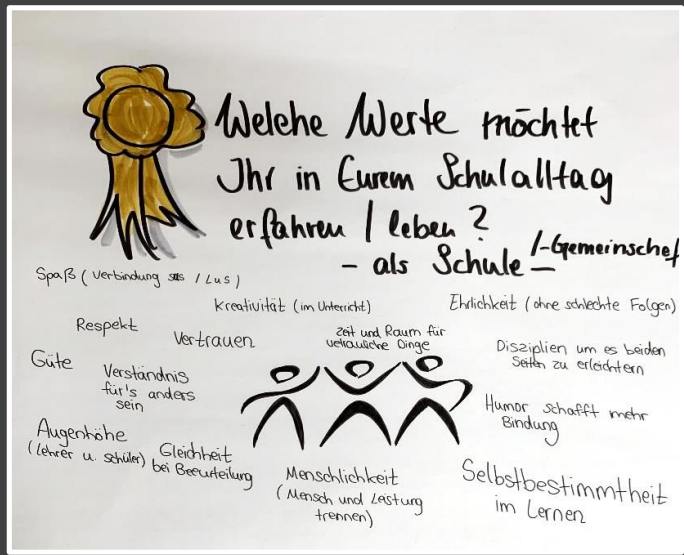 Welche Werte möchtet
Ihr in Eurem Schulalltag
erfahren / leben?
- als Schule -
/-Gemeinschaf
Spaß (Verbindung SuS / LuS)
Kreativität (im Unterricht)
Ehrlichkeit (ohne schlechte Folgen)
Respekt
Vertrauen
Zeit und Raum für
vetrauliche Dinge
Disziplien um es beiden
Seiten zu erleichtern
Güte
Verständnis
für's anders
sein
Humor schafft mehr
Bindung
Augenhöhe
(Lehrer u. Schüler)
Gleichheit
bei Beeurteilung
Menschlichkeit
(Mensch und Leistung
trennen)
Selbstbestimmtheit
im Lernen